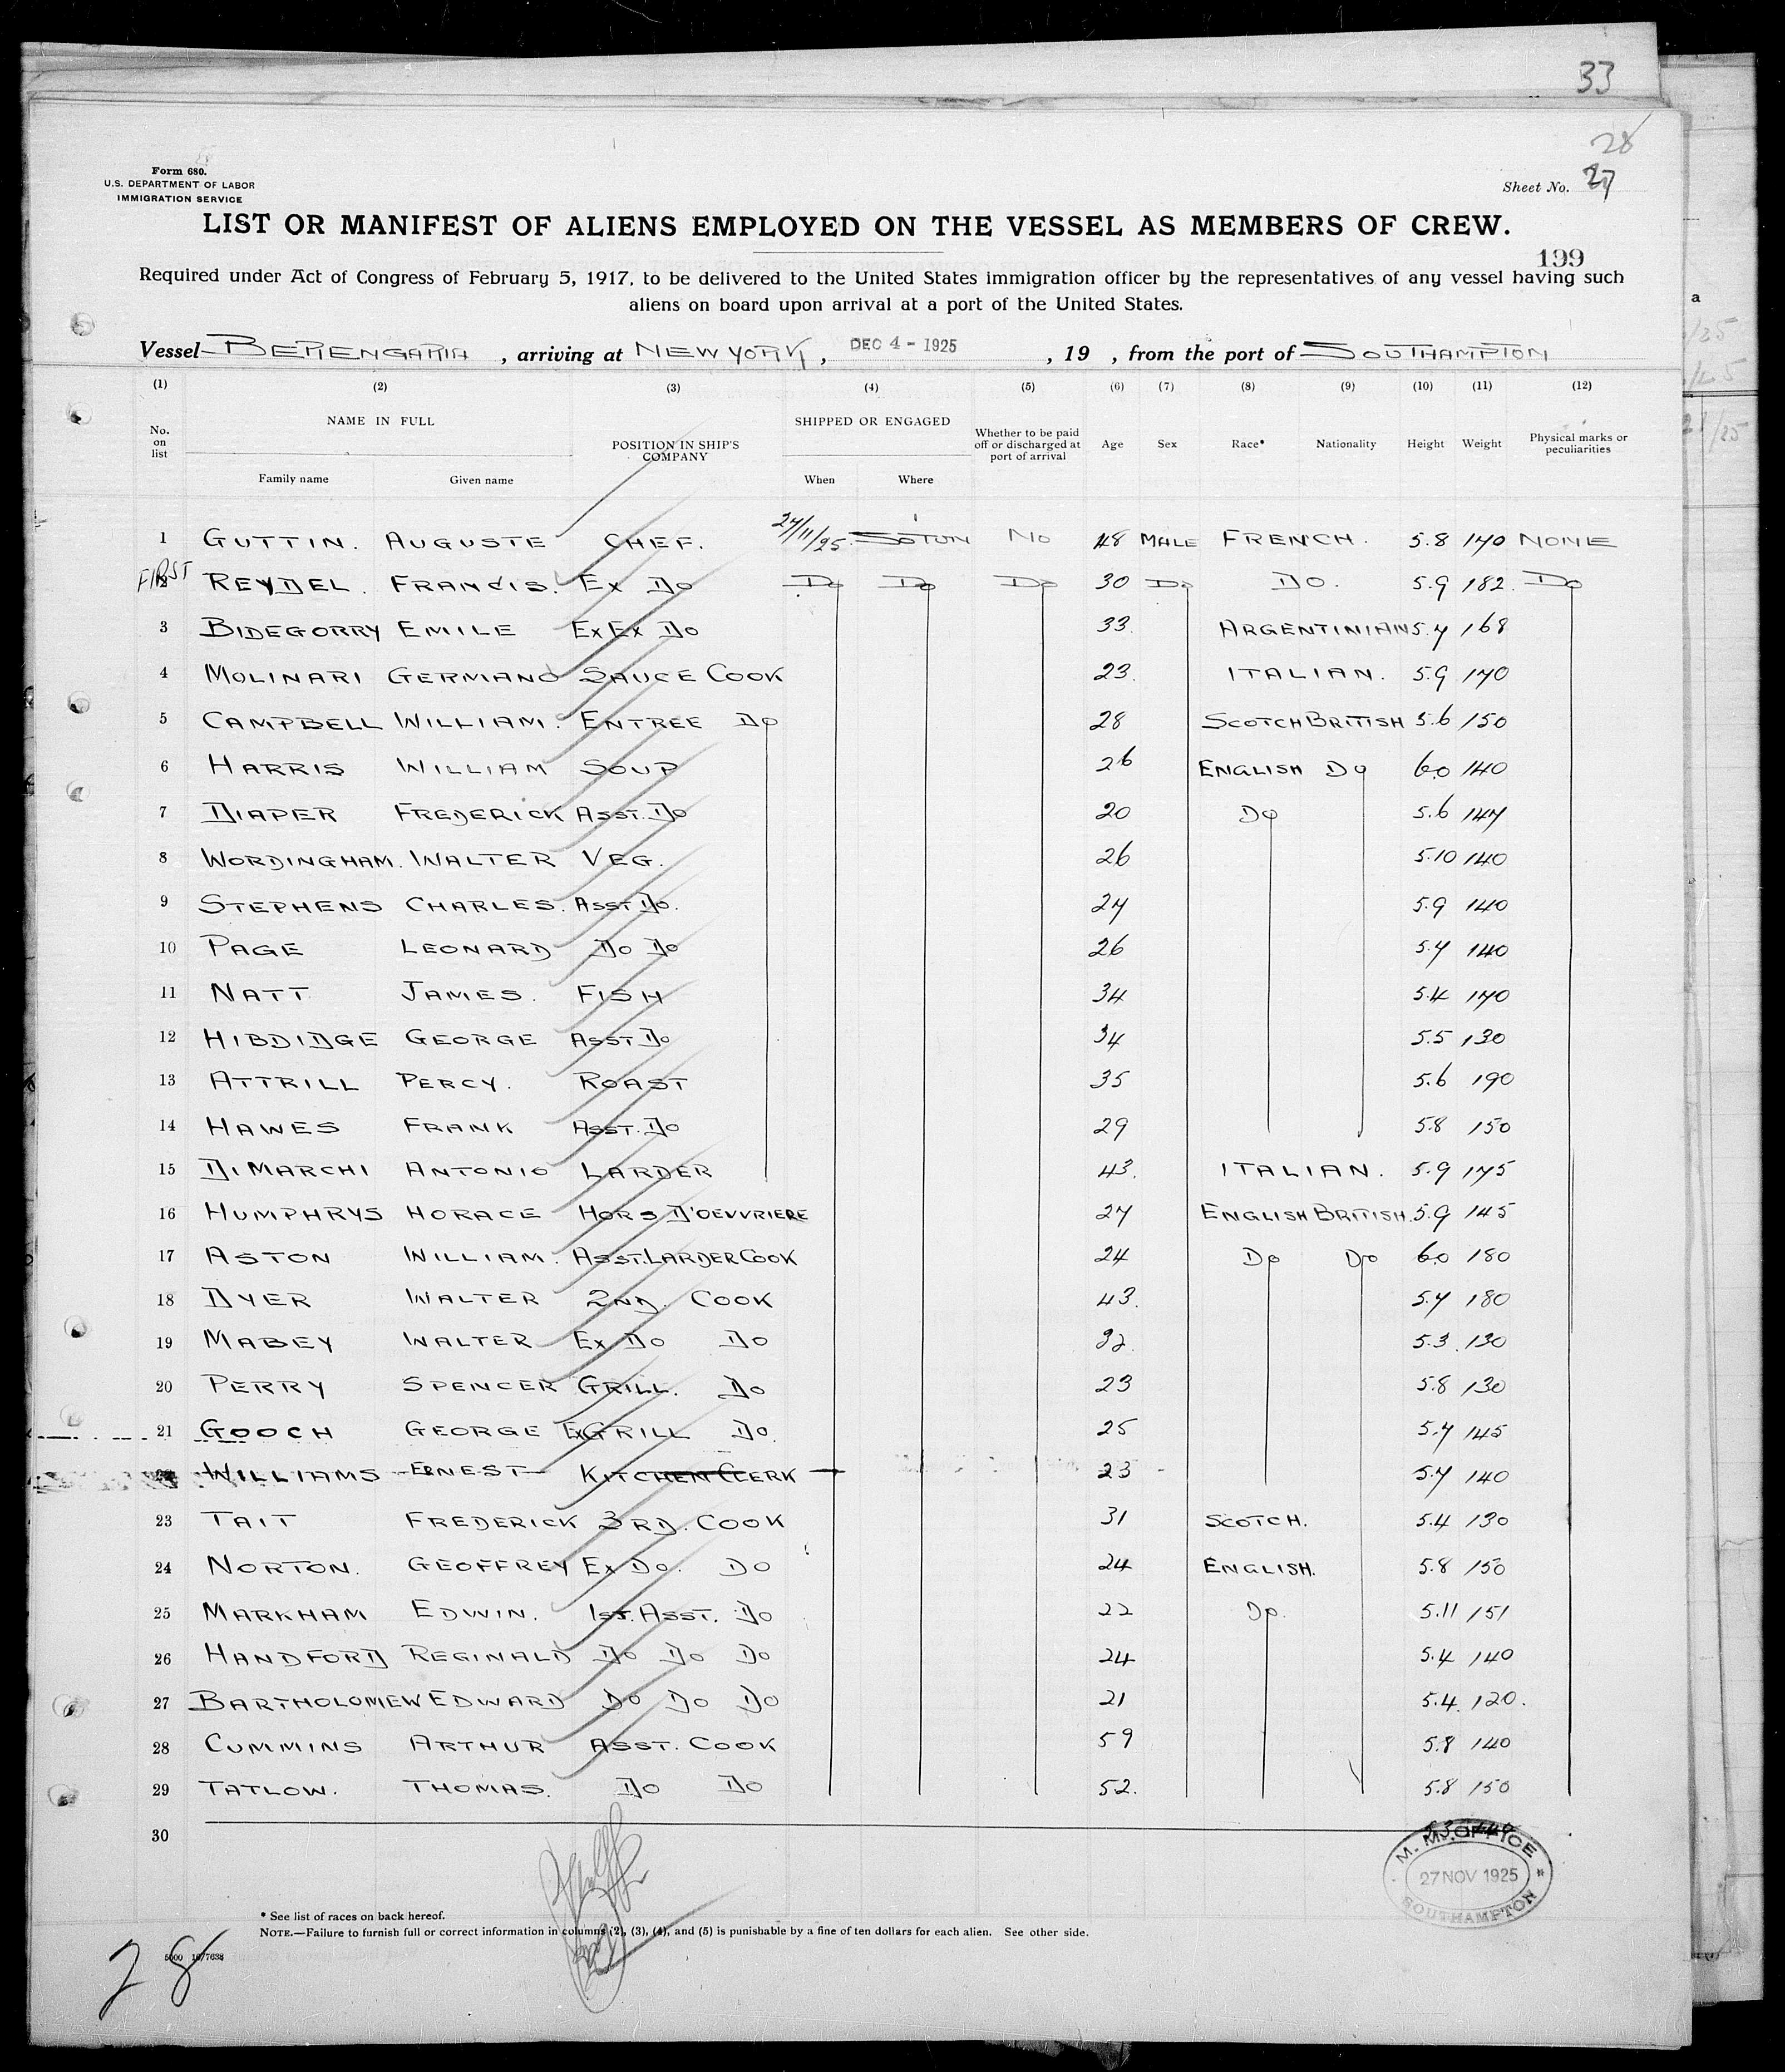 33
28
Form 680.
U.S. DEPARTMENT OF LABOR
IMMIGRATION SERVICE
Sheet No. 27
LIST OR MANIFEST OF ALIENS EMPLOYED ON THE VESSEL AS MEMBERS OF CREW.
199
Required under Act of Congress of February 5, 1917, to be delivered to the United States immigration officer by the representatives of any vessel having such
aliens on board upon arrival at a port of the United States.
Vessel BERENGARIA, arriving at NEW YORK, DEC 4 - 1925, 19 , from the port of SOUTHAMPTON
(1) (2) (3) (4) (5) (6) (7) (8) (9) (10) (11) (12)
No. on list NAME IN FULL POSITION IN SHIP'S COMPANY SHIPPED OR ENGAGED Whether to be paid off or discharged at port of arrival Age Sex Race* Nationality Height Weight Physical marks or peculiarities
Family name Given name When Where
1 GUTTIN. AUGUSTE CHEF. 27/11/25. SOTON NO 48 MALE FRENCH. 5.8 170 NONE
FIRST
2 REYDEL. FRANCIS. EX DO DO DO DO 30 DO DO. 5.9 182. DO
3 BIDEGORRY EMILE EX EX DO 33. ARGENTINIAN 5.7 168
4 MOLINARI GERMANO SAUCE COOK 23. ITALIAN. 5.9 170
5 CAMPBELL WILLIAM. ENTREE DO 28 SCOTCH BRITISH 5.6 150
6 HARRIS WILLIAM SOUP 26 ENGLISH DO 6.0 140
7 DIAPER FREDERICK ASST. DO 20 DO 5.6 147
8 WORDINGHAM. WALTER VEG. 26 5.10 140
9 STEPHENS CHARLES. ASST DO. 27 5.9 140
10 PAGE LEONARD DO DO 26 5.7 140
11 NATT JAMES. FISH 34 5.4 170
12 HIBDIDGE GEORGE ASST DO 34 5.5 130
13 ATTRILL PERCY. ROAST 35 5.6 190
14 HAWES FRANK ASST. DO 29 5.8 150
15 DIMARCHI ANTONIO LARDER 43. ITALIAN. 5.9 175
16 HUMPHRYS HORACE HORS D'OEVVRIERE 27 ENGLISH BRITISH. 5.9 145
17 ASTON WILLIAM. ASST. LARDER COOK 24 DO DO 6.0 180
18 DYER WALTER 2ND. COOK 43. 5.7 180
19 MABEY WALTER EX DO DO 32. 5.3. 130
20 PERRY SPENCER GRILL. DO 23 5.8 130
21 GOOCH GEORGE EX GRILL DO. 25 5.7 145
WILLIAMS ERNEST KITCHEN CLERK 23 5.7 140
23 TAIT FREDERICK 3RD. COOK 31 SCOTCH. 5.4 130
24 NORTON. GEOFFREY EX DO. DO 24 ENGLISH. 5.8 150
25 MARKHAM EDWIN. 1ST. ASST. DO 22 DO. 5.11 151
26 HANDFORD REGINALD DO DO DO 24 5.4 140
27 BARTHOLOMEW EDWARD DO DO DO 21 5.4. 120.
28 CUMMINS ARTHUR ASST. COOK 59 5.8 140
29 TATLOW. THOMAS. DO DO 52. 5.8 150
30
M. M. OFFICE
27 NOV 1925
SOUTHAMPTON
* See list of races on back hereof.
NOTE.—Failure to furnish full or correct information in columns (2), (3), (4), and (5) is punishable by a fine of ten dollars for each alien. See other side.
28